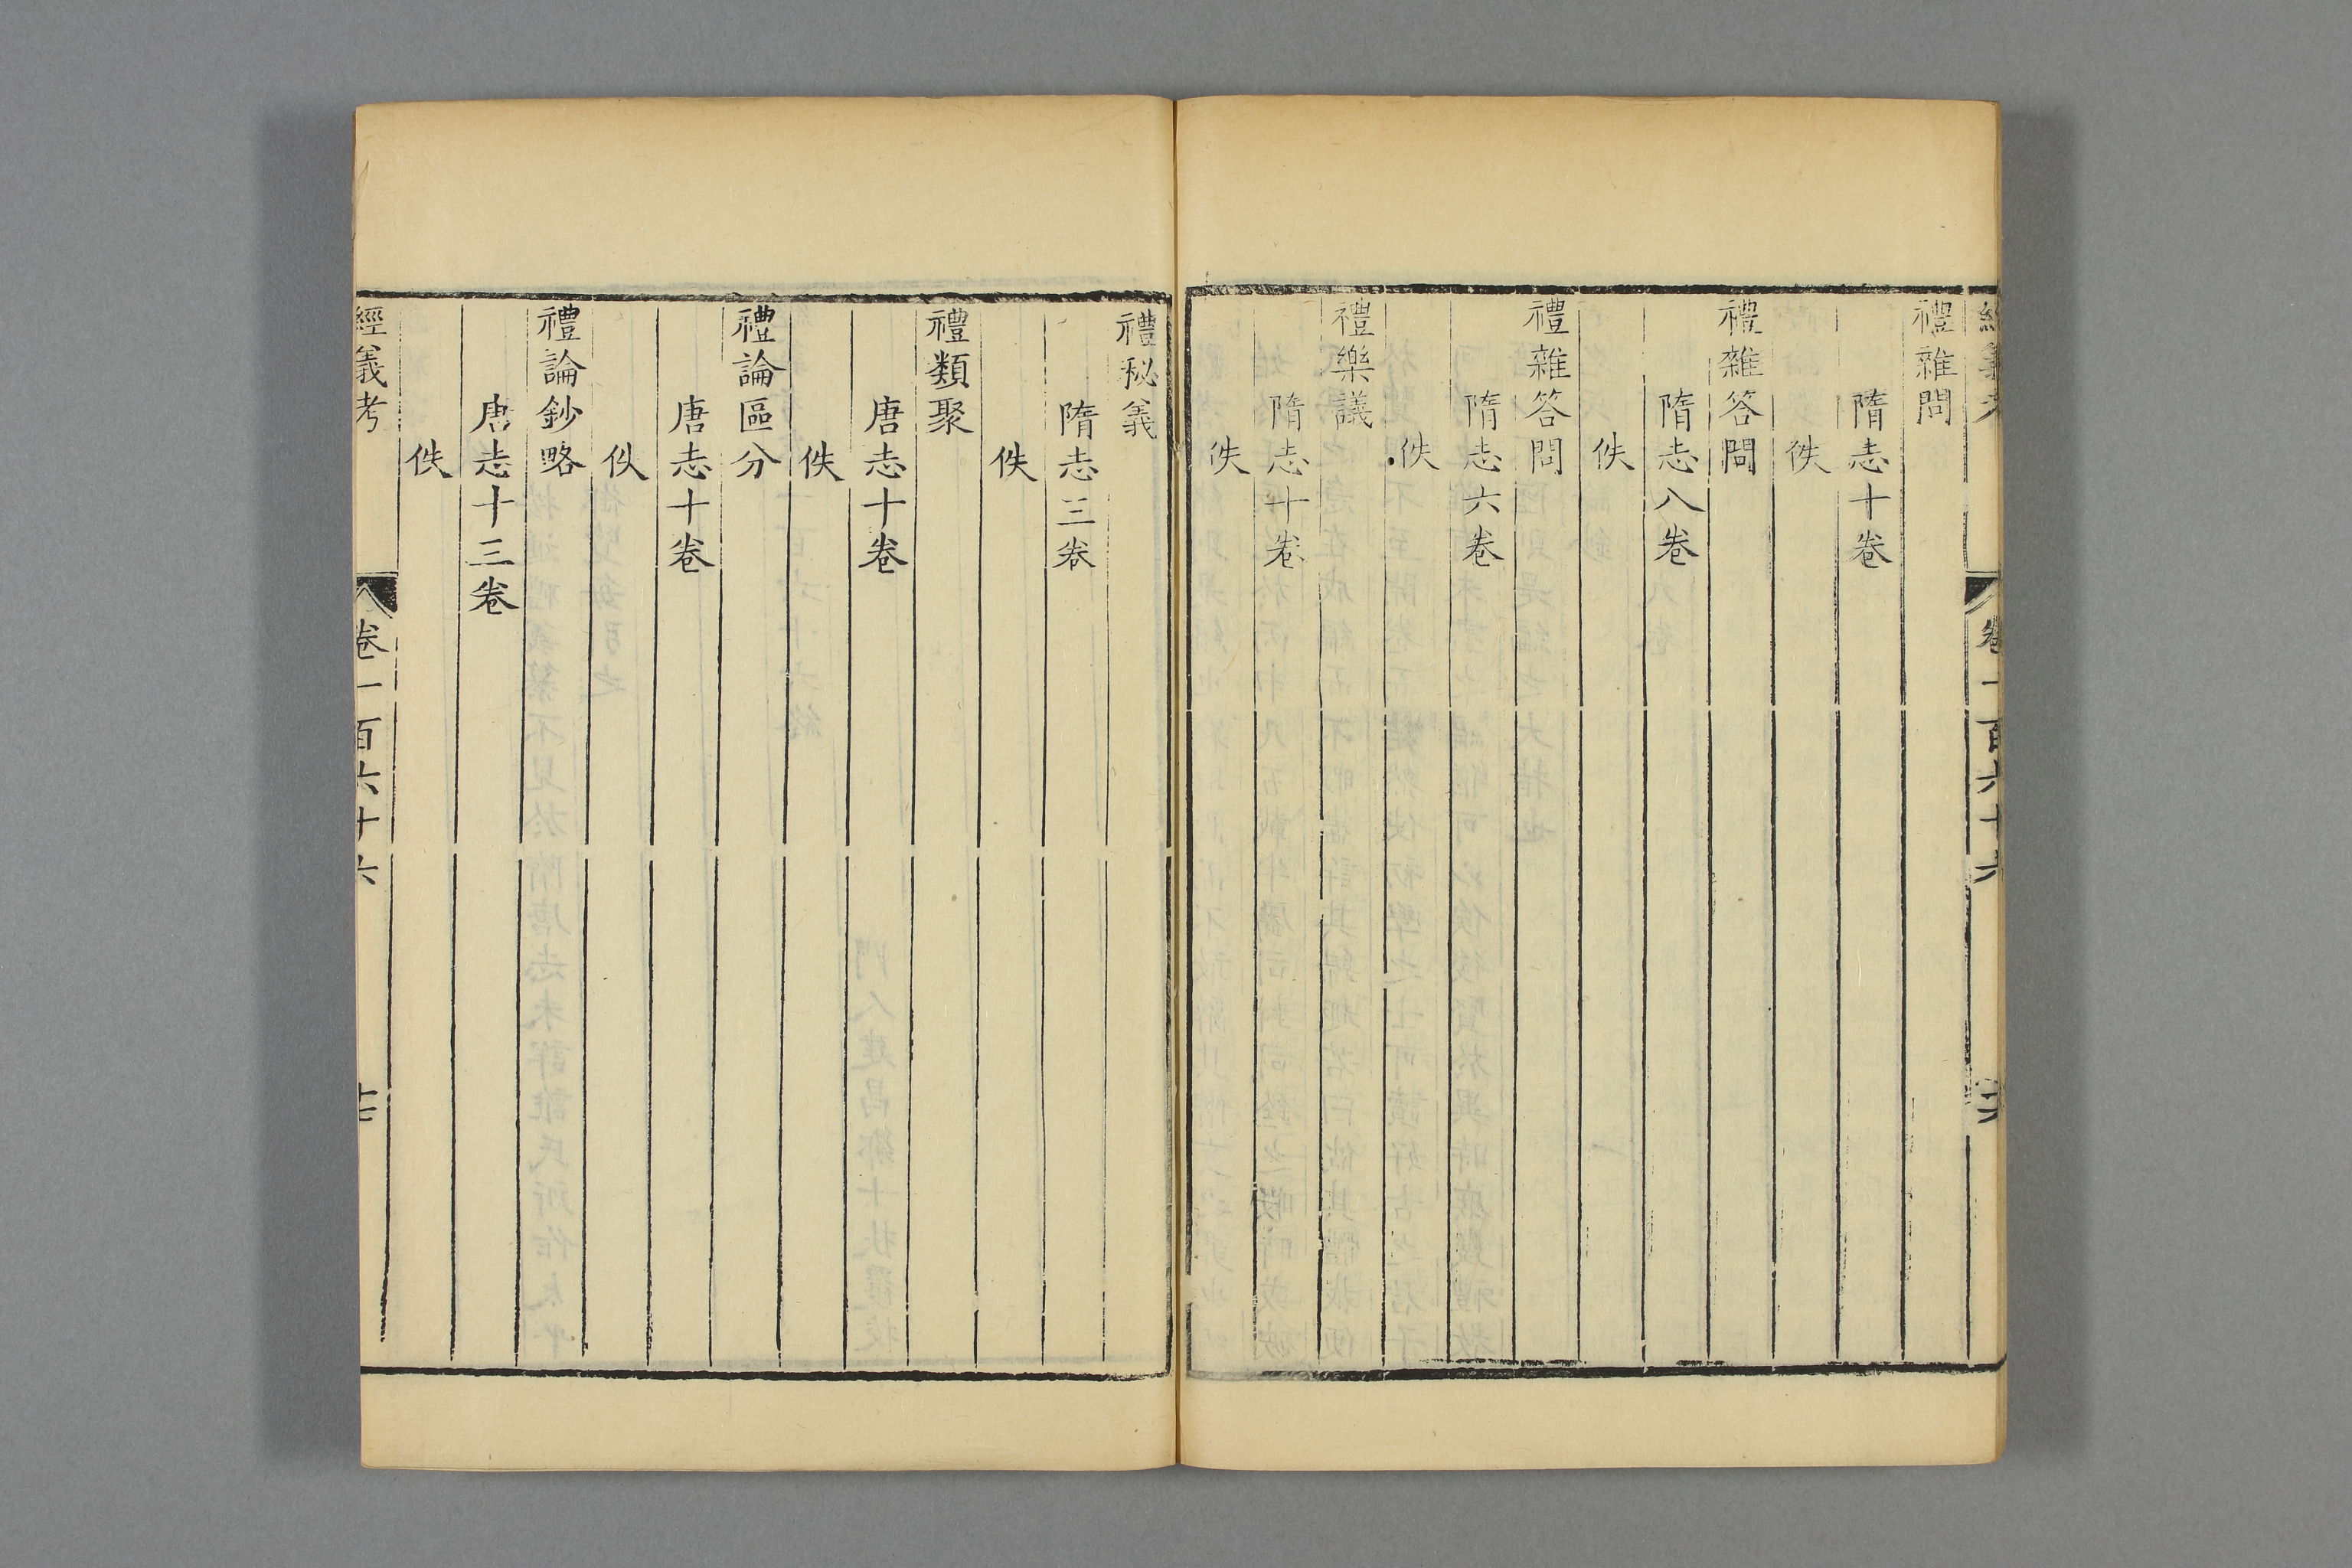 禮雜問
隋志十卷
佚
禮雜答問
隋志八卷
佚
禮雜答問
隋志六卷
佚
禮樂議
隋志十卷
佚
禮秘義
隋志三卷
佚
禮類聚
唐志十卷
佚
禮論區分
唐志十卷
佚
禮論鈔略
唐志十三卷
佚
經義考
卷一百六十六